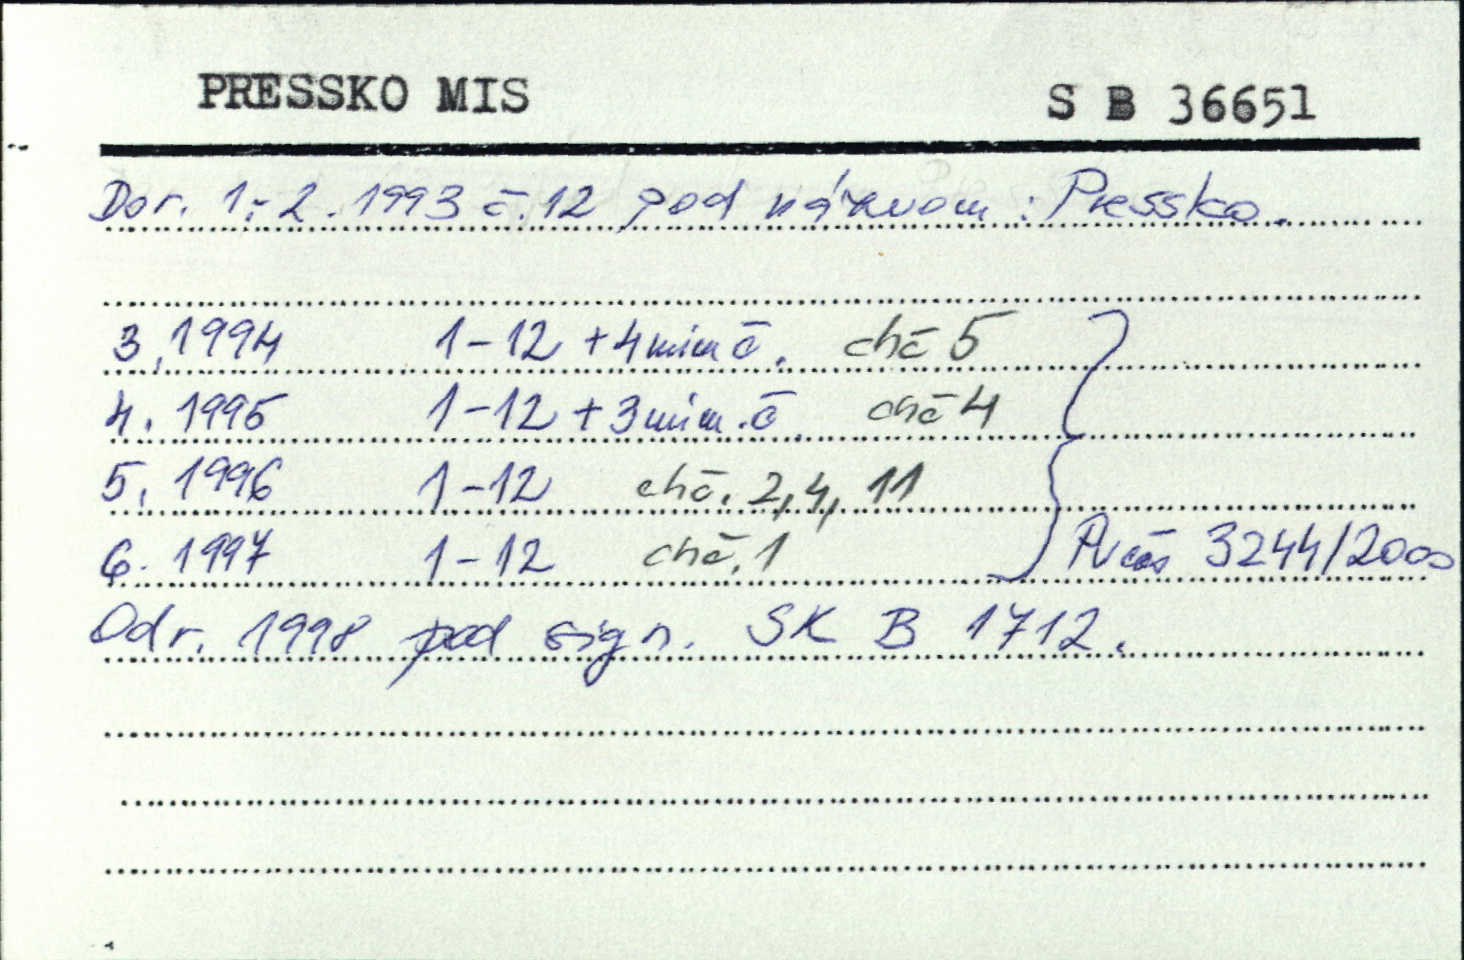 PRESSKO MIS S B 36651
Do r. 1.-2.1993 č.12 pod názvom: Pressko.
3.1994 1-12 + 4 mim č. chč 5
4. 1995 1-12 + 3 mim. č chč 4
5. 1996 1-12 chč. 2,4, 11
6. 1997 1-12 chč. 1 3244/2000
Od r. 1998 pod sign. SK B 1712.